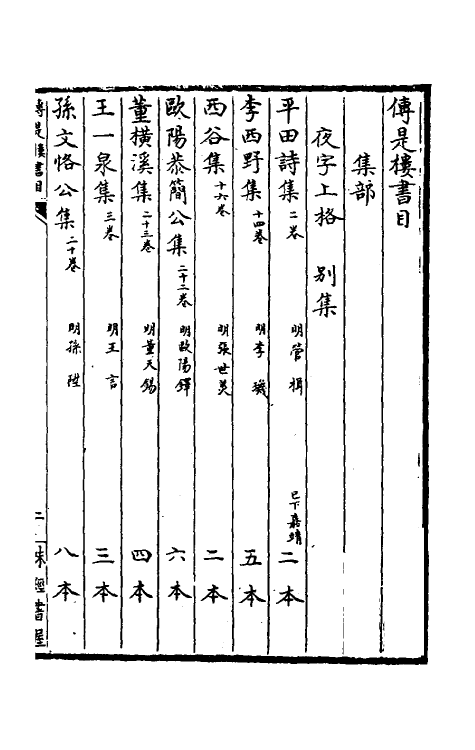 傳是樓書目
集部
夜字上格 別集
平田詩集二卷 明管楫 已下嘉靖 二本
李西野集十四卷 明李璣 五本
西谷集十六卷 明張世美 二本
歐陽恭簡公集二十二卷 明歐陽鐸 六本
董橫溪集二十三卷 明董天錫 四本
王一泉集三卷 明王言 三本
孫文恪公集二十卷 明孫陞 八本
傳是樓書目 二 味經書屋